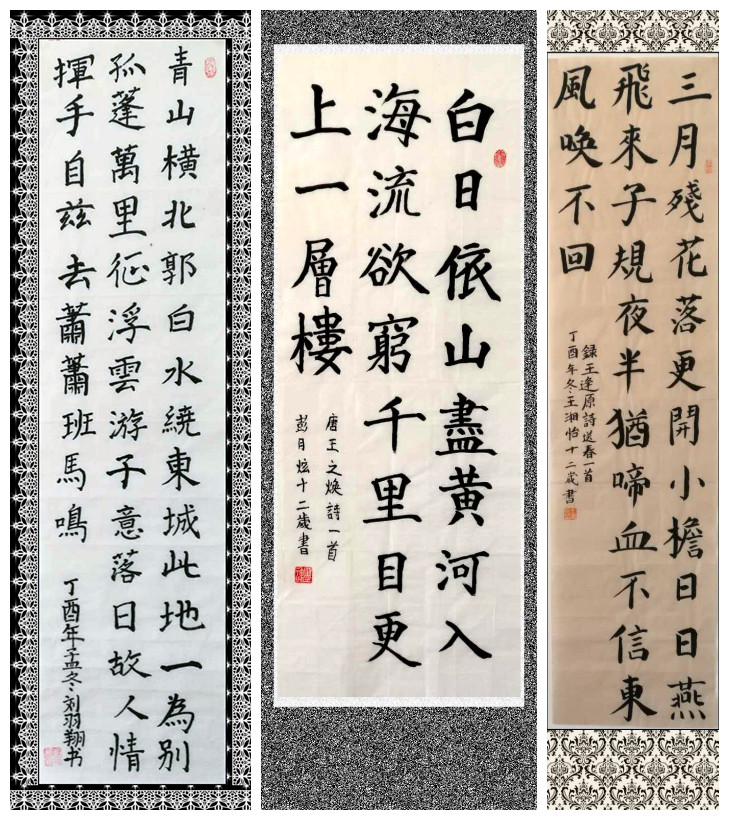 青山橫北郭白水繞東城此地一為別
孤蓬萬里征浮雲游子意落日故人情
揮手自茲去蕭蕭班馬鳴
丁酉年孟冬刘羽翔书
白日依山盡黃河入
海流欲窮千里目更
上一層樓
唐王之焕詩一首
彭月炫十二歲書
三月殘花落更開小檐日日燕
飛來子規夜半猶啼血不信東
風唤不回
録王逢原詩送春一首
丁酉年冬王湘怡十二歲書